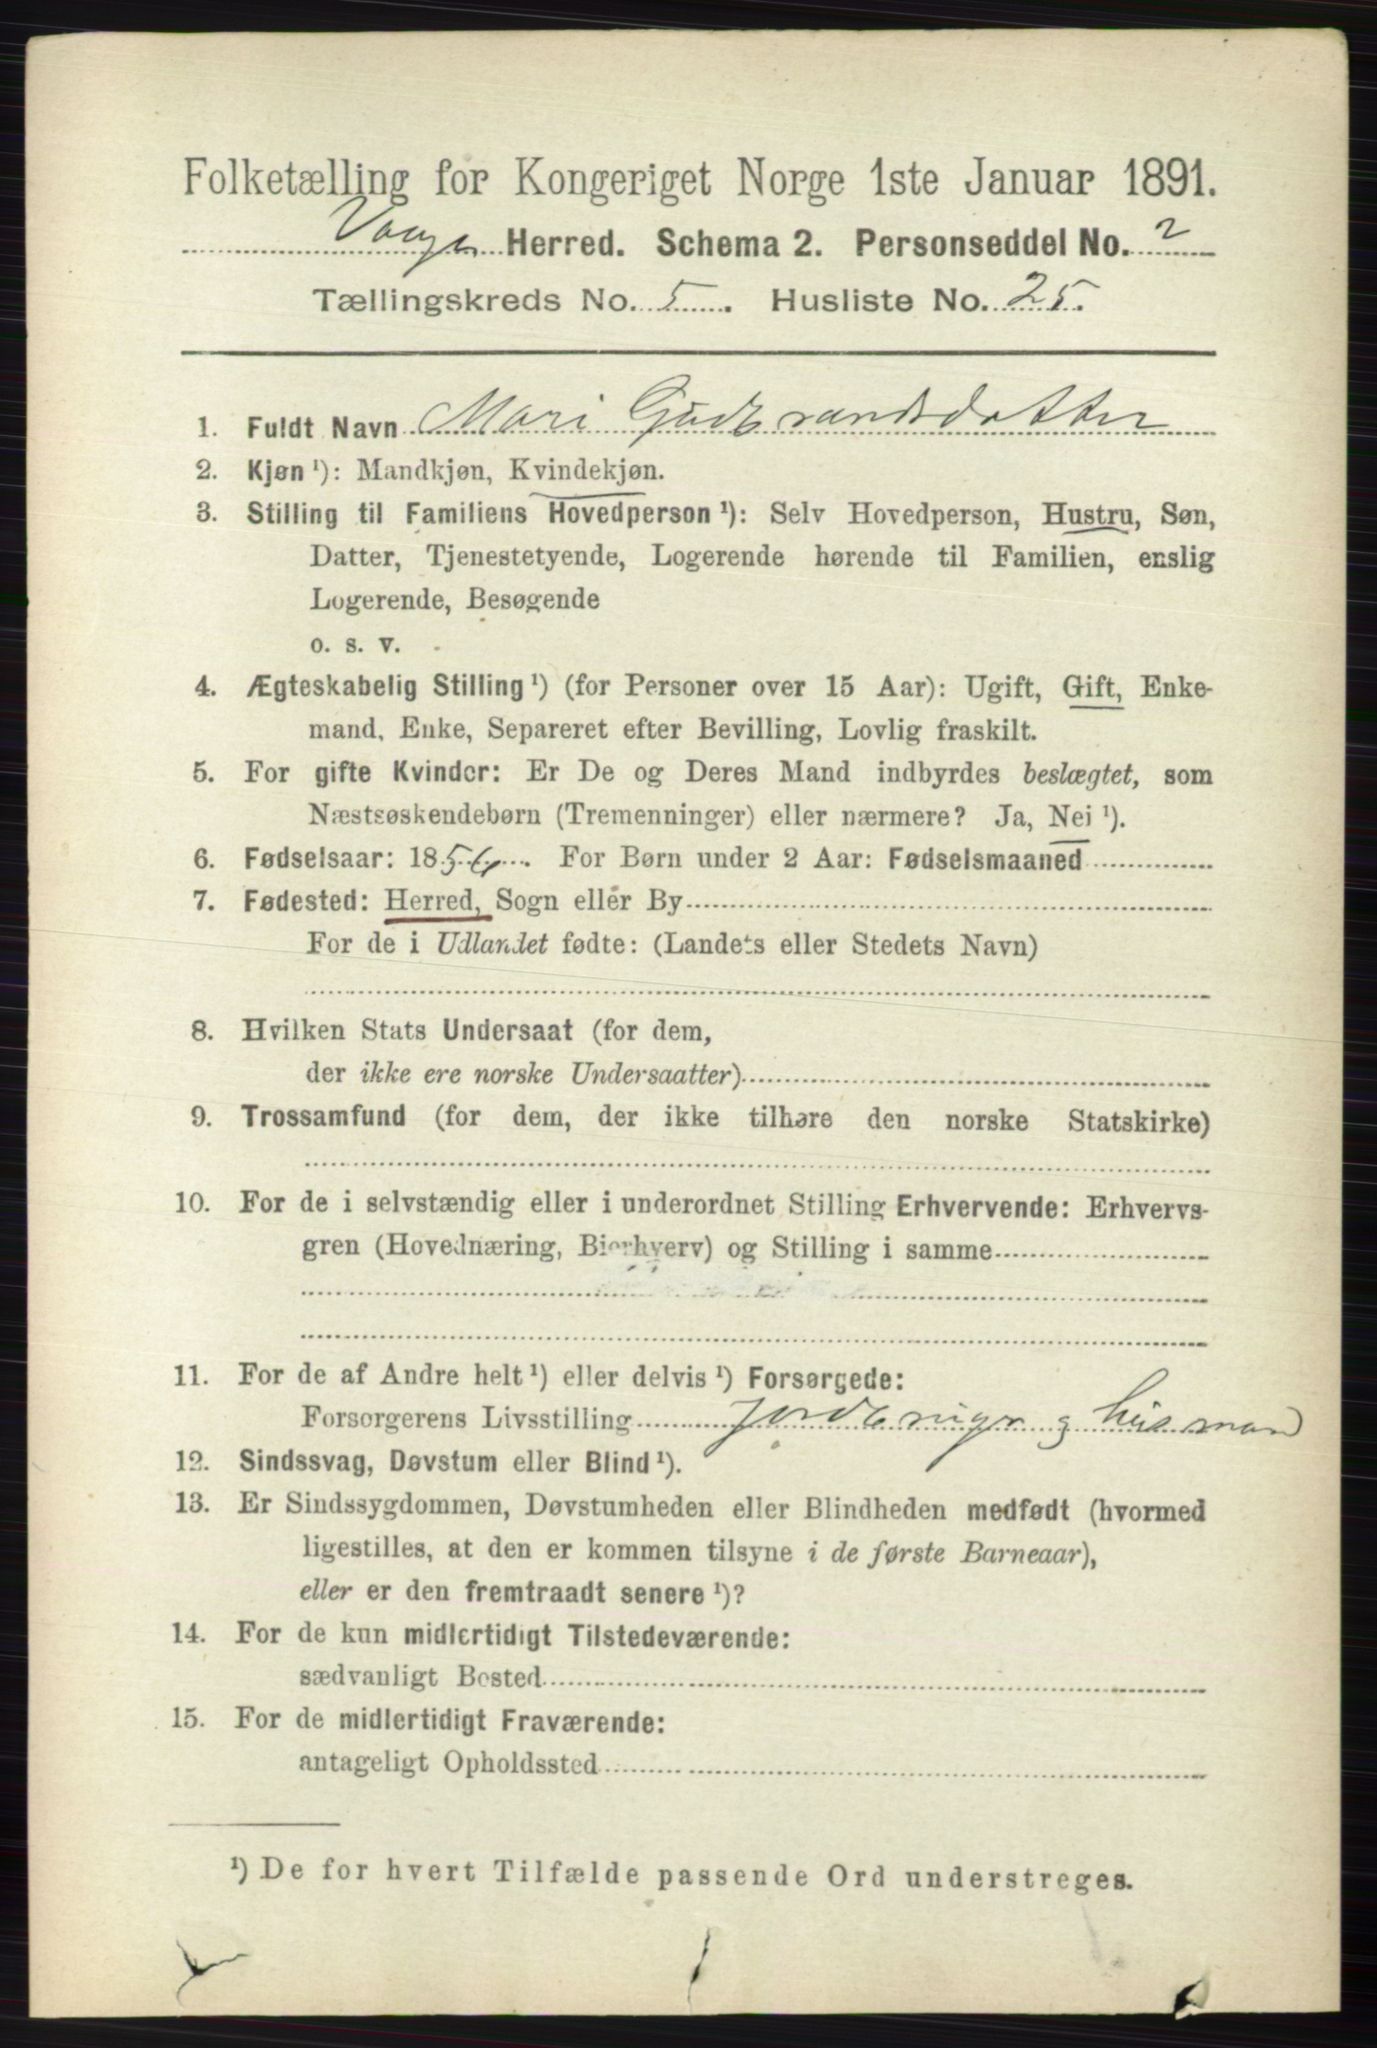 Folketælling for Kongeriget Norge 1ste Januar 1891.
Vaage Herred. Schema 2. Personseddel No. 2
Tællingskreds No. 5. Husliste No. 25.
1. Fuldt Navn Mari Gudbrandsdatter
2. Kjøn ¹): Mandkjøn, Kvindekjøn.
3. Stilling til Familiens Hovedperson ¹): Selv Hovedperson, Hustru, Søn,
Datter, Tjenestetyende, Logerende hørende til Familien, enslig
Logerende, Besøgende
o. s. v.
4. Ægteskabelig Stilling ¹) (for Personer over 15 Aar): Ugift, Gift, Enke-
mand, Enke, Separeret efter Bevilling, Lovlig fraskilt.
5. For gifte Kvinder: Er De og Deres Mand indbyrdes beslægtet, som
Næstsøskendebørn (Tremenninger) eller nærmere? Ja, Nei ¹).
6. Fødselsaar: 1856. For Børn under 2 Aar: Fødselsmaaned
7. Fødested: Herred, Sogn eller By
For de i Udlandet fødte: (Landets eller Stedets Navn)
8. Hvilken Stats Undersaat (for dem,
der ikke ere norske Undersaatter)
9. Trossamfund (for dem, der ikke tilhøre den norske Statskirke)
10. For de i selvstændig eller i underordnet Stilling Erhvervende: Erhvervs-
gren (Hovednæring, Bierhverv) og Stilling i samme
11. For de af Andre helt ¹) eller delvis ¹) Forsørgede:
Forsorgerens Livsstilling Jordbruger og husmand
12. Sindssvag, Døvstum eller Blind ¹).
13. Er Sindssygdommen, Døvstumheden eller Blindheden medfødt (hvormed
ligestilles, at den er kommen tilsyne i de første Barneaar),
eller er den fremtraadt senere ¹)?
14. For de kun midlertidigt Tilstedeværende:
sædvanligt Bosted
15. For de midlertidigt Fraværende:
antageligt Opholdssted
¹) De for hvert Tilfælde passende Ord understreges.